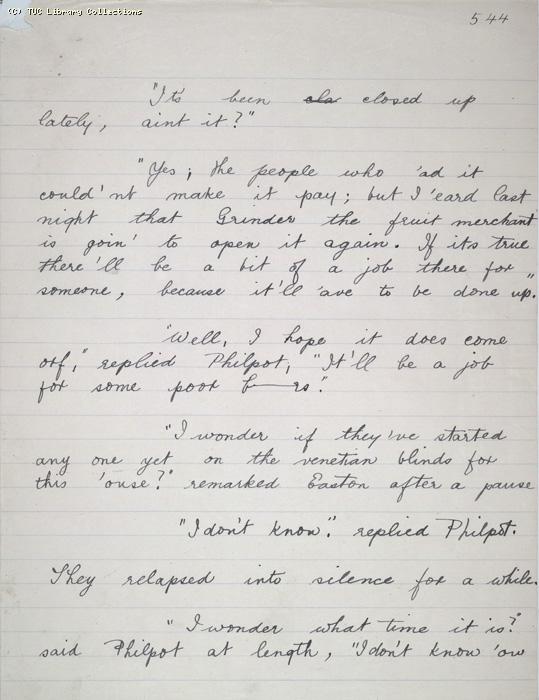 (C) TUC Library Collections
544
"It's been cla closed up
lately, aint it?"
"Yes; the people who 'ad it
could'nt make it pay; but I 'eard last
night that Grinder the fruit merchant
is goin' to open it again. If its true
there'll be a bit of a job there for
someone, because it'll 'ave to be done up."
"Well, I hope it does come
orf," replied Philpot, "It'll be a job
for some poor b——rs".
"I wonder if they've started
any one yet on the venetian blinds for
this 'ouse?" remarked Easton after a pause
"I don't know". replied Philpot.
They relapsed into silence for a while.
"I wonder what time it is?"
said Philpot at length, "I don't know 'ow